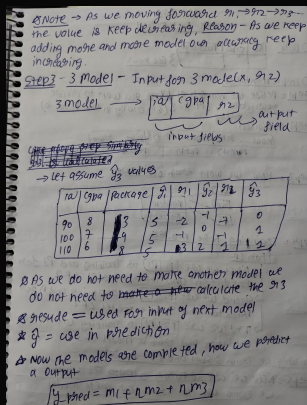 Note → As we moving forward r1, →r2→r3→
the value is keep decreasing, Reason - As we keep
adding more and more model our accuracy keep
increasing.
Step3 - 3 Model - Input for 3 model (x, r2)
3 model → iq cgpa r2
input fields output field
→ let assume ŷ3 values
iq cgpa package ŷ1 r1 ŷ2 r2 ŷ3
90 8 3 5 -2 -1 -1 0
100 7 4 5 -1 0 -1 1
110 6 8 5 3 2 1 1
As we do not need to make another model we
do not need to make a new calculate the r3
resude = used for input of next model
ŷ = use in prediction
Now the models are completed, how we predict
a output
y pred = m1 + n m2 + n m3